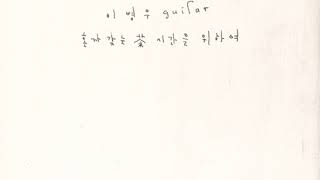 이 병우 guitar
혼자 갖는 茶 시간을 위하여